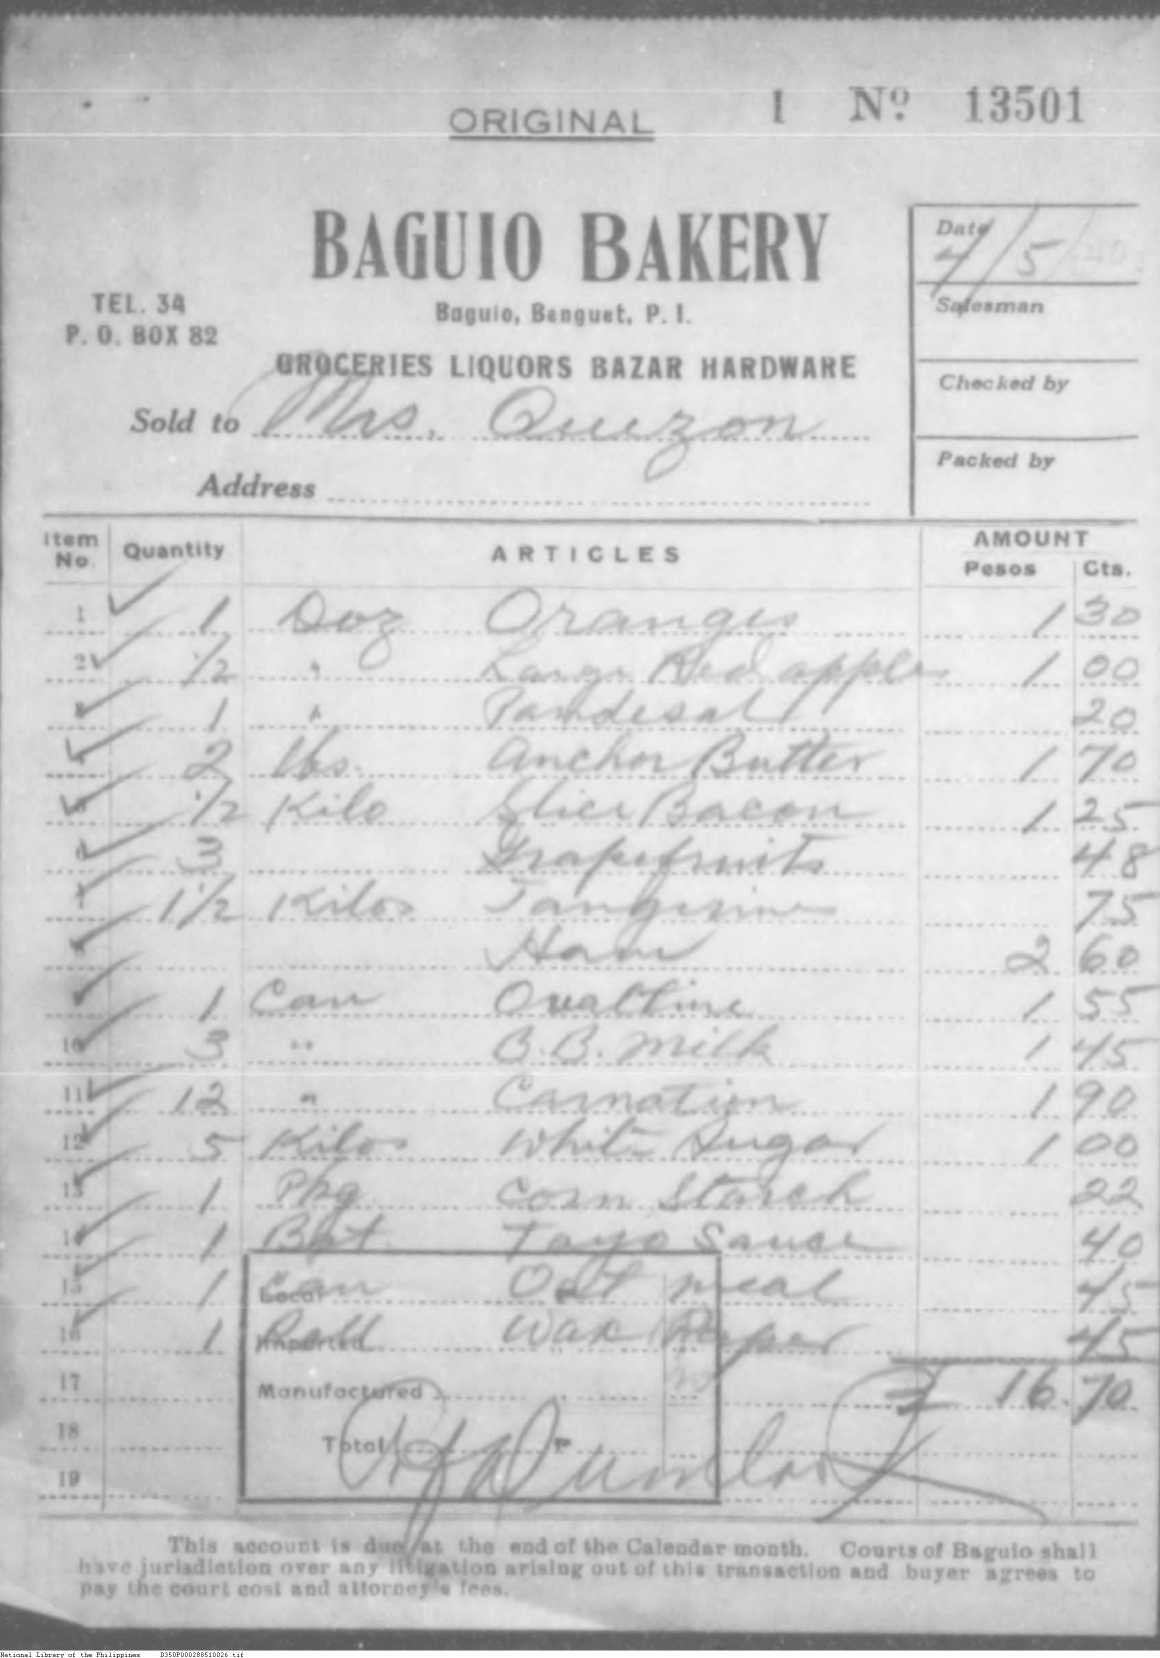 ORIGINAL
1 Nº 13501
BAGUIO BAKERY
TEL. 34
P. O. BOX 82
Baguio, Benguet, P. I.
GROCERIES LIQUORS BAZAR HARDWARE
Date 4/5/40
Salesman
Checked by
Packed by
Sold to Mrs. Quezon
Address
Item No. Quantity ARTICLES AMOUNT Pesos Cts.
1 1 Doz Oranges 1 30
2 1/2 " Large Red apples 1 00
3 1 " Pandesal 20
4 2 lbs. Anchor Butter 1 70
5 1/2 Kilo Slice Bacon 1 25
6 3 Grapefruits 48
7 1 1/2 Kilos Tangerine 75
8 Ham 2 60
9 1 Can Ovaltine 1 55
10 3 " B.B. Milk 1 45
11 12 " Carnation 1 90
12 5 Kilos White Sugar 1 00
13 1 Pkg Corn Starch 22
14 1 Bot Tayo Sauce 40
15 1 Can Oat meal 45
16 1 Roll Wax Paper 45
17 16.70
18
19
Local
Imported
Manufactured
Total P
This account is due at the end of the Calendar month. Courts of Baguio shall
have jurisdiction over any litigation arising out of this transaction and buyer agrees to
pay the court cost and attorney's fees.
National Library of the Philippines D350P000288510026.tif